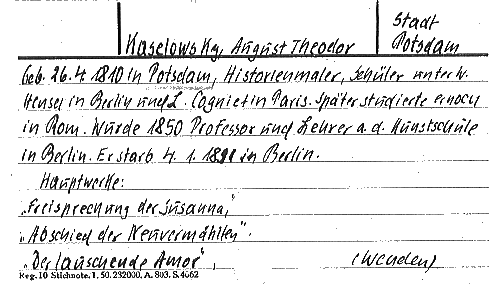 Stadt
Kaselowsky, August Theodor
Potsdam
Geb. 26.4 1810 in Potsdam, Historienmaler, Schüler unter W.
Hensel in Berlin und L. Cogniet in Paris. Später studierte er noch
in Rom. Wurde 1850 Professor und Lehrer a. d. Kunstschule
in Berlin. Er starb 4. 1. in Berlin.
Hauptwerke:
„Freisprechung der Susanna,"
„Abschied der Neuvermählten".
„Der lauschende Amor", (Wenden)
Reg. 10 Stichnote. 1, 50. 232000. A. 803. S. 4662